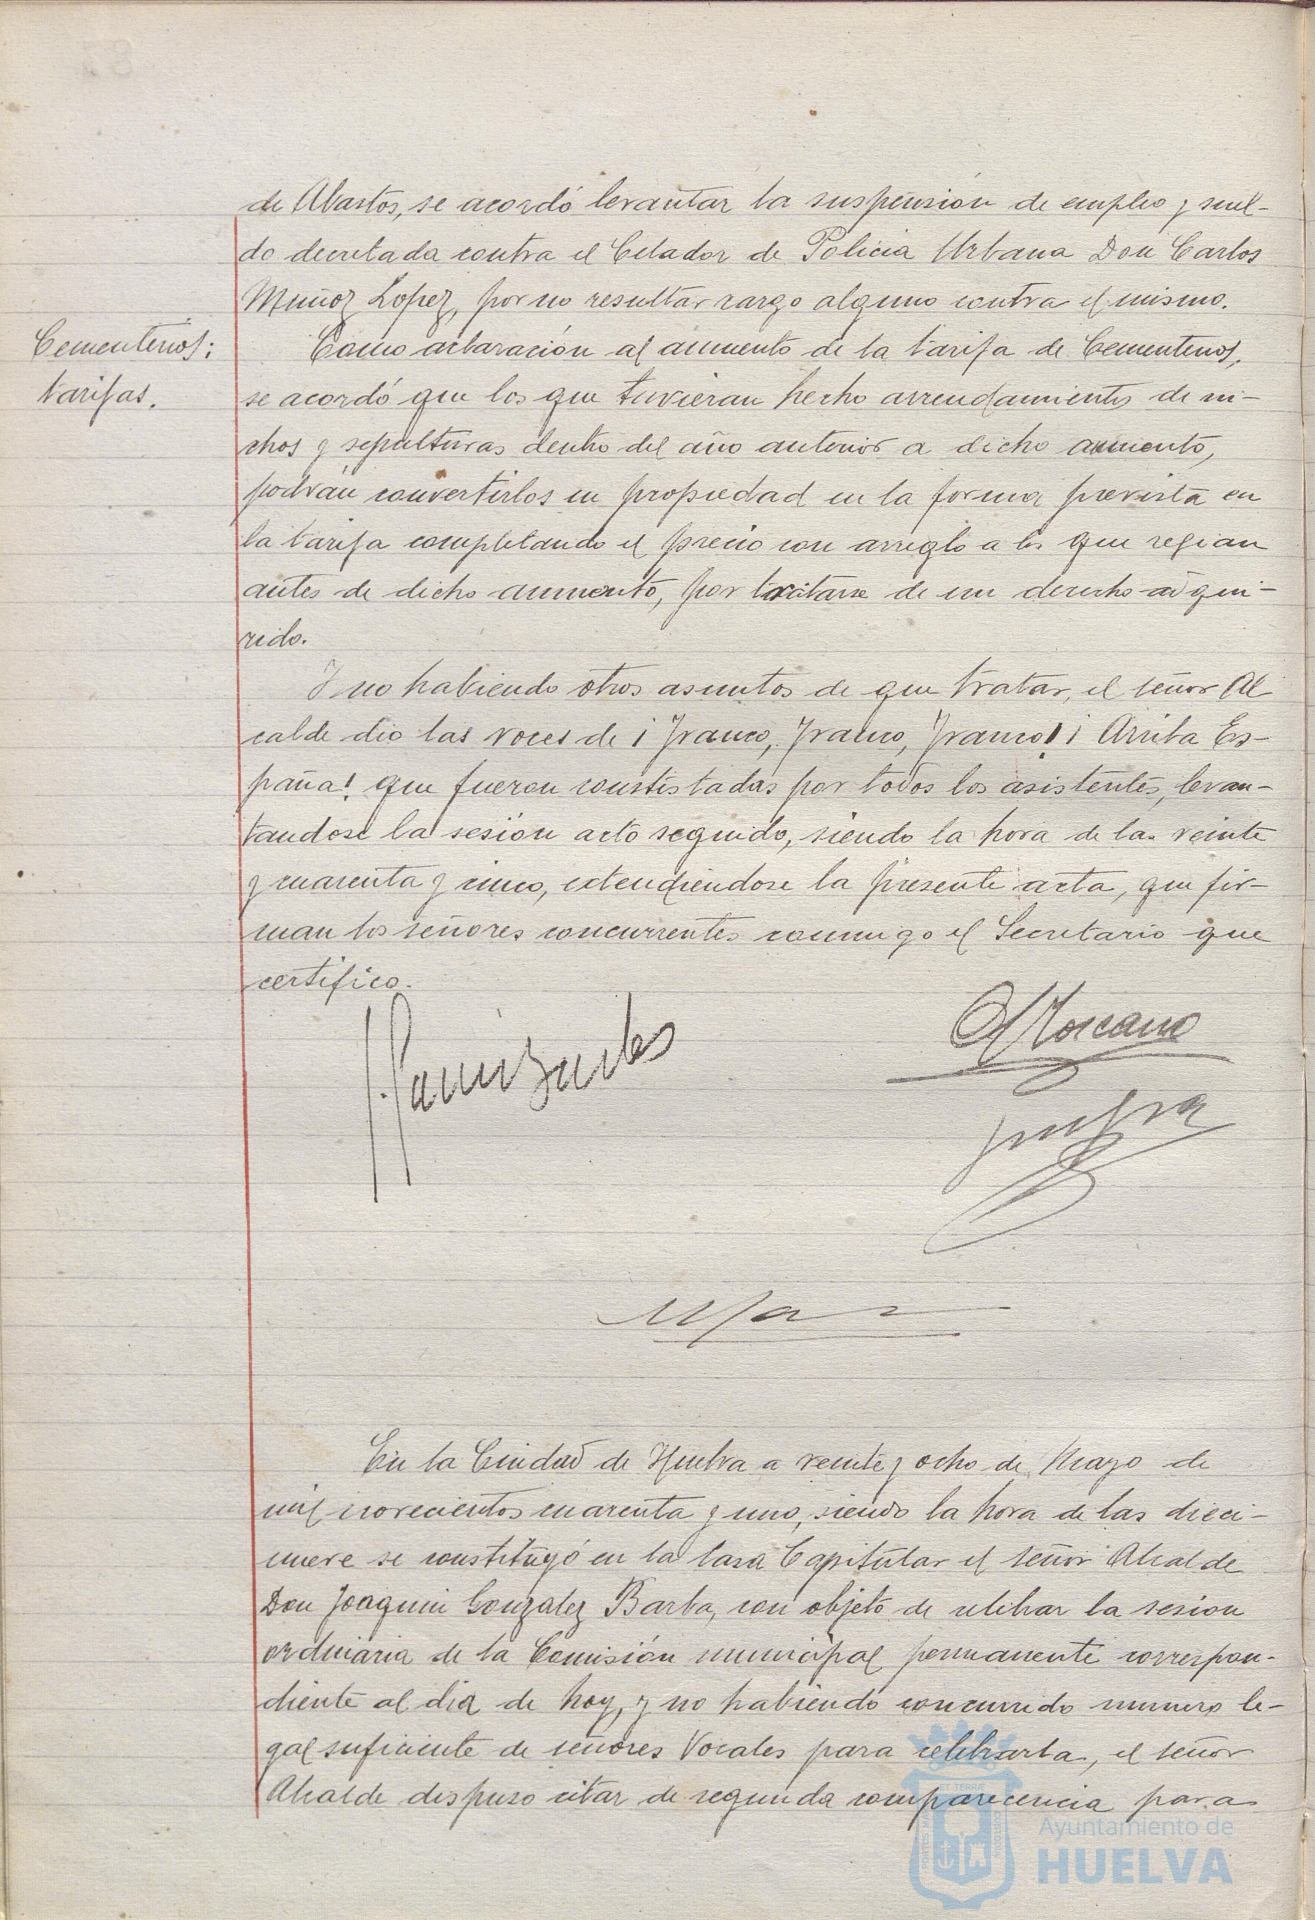 de Abastos, se acordó levantar la suspensión de empleo y suel-
do decretada contra el Celador de Policia Urbana Don Carlos
Muñoz Lopez, por no resultar cargo alguno contra el mismo.
Cementerios:
tarifas.
Como aclaración al aumento de la tarifa de Cementerios,
se acordó que los que tuvieran hecho arrendamientos de ni-
chos y sepulturas dentro del año anterior a dicho aumento,
podrán convertirlos en propiedad en la forma prevista en
la tarifa completando el precio con arreglo a los que regian
antes de dicho aumento, por tratarse de un derecho adqui-
rido.
Y no habiendo otros asuntos de que tratar, el señor Al
calde dio las voces de ¡Franco, Franco, Franco! ¡Arriba Es-
paña! que fueron contestadas por todos los asistentes, levan-
tandose la sesión acto seguido, siendo la hora de las veinte
y cuarenta y cinco, extendiendose la presente acta, que fir-
man los señores concurrentes conmigo el Secretario que
certifico.
Toscano
En la Ciudad de Huelva a veinte y ocho de Mayo de
mil novecientos cuarenta y uno, siendo la hora de las dieci-
nueve se constituyó en la Casa Capitular el señor Alcalde
Don Joaquin Gonzalez Barba, con objeto de celebrar la sesion
ordinaria de la Comisión municipal permanente correspon-
diente al dia de hoy, y no habiendo concurrido numero le-
gal suficiente de señores Vocales para celebrarla, el señor
Alcalde dispuso citar de segunda comparecencia para
Ayuntamiento de
HUELVA